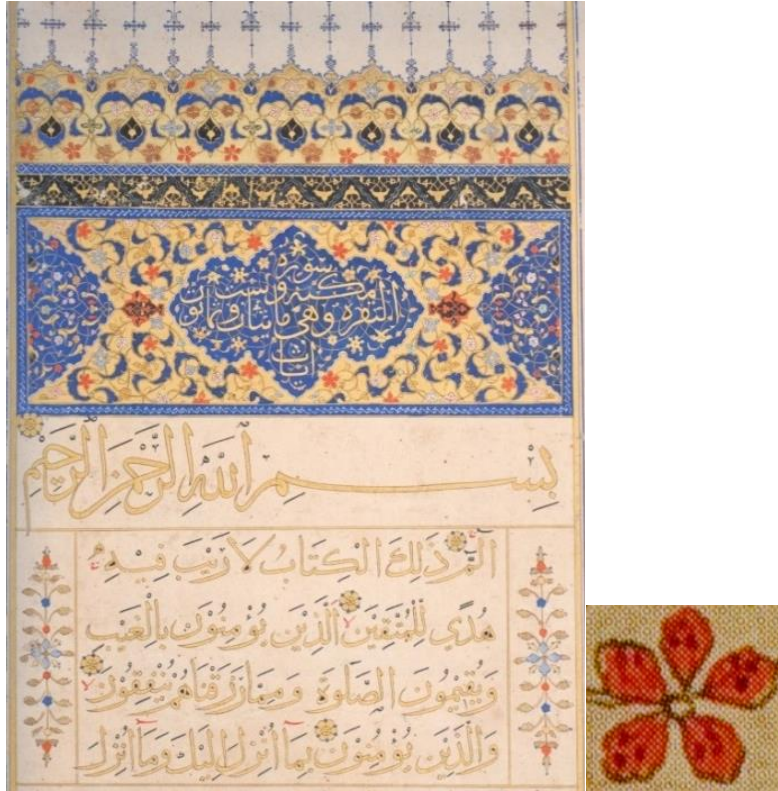 سوره
مكيه وست
البقره وهي مائتان وثمانون
ايات
بِسْمِ اللهِ الرَّحْمَنِ الرَّحِيمِ
الٓمّٓ ذَلِكَ الْكِتَابُ لَا رَيْبَ فِيهِ
هُدًى لِلْمُتَّقِينَ الَّذِينَ يُؤْمِنُونَ بِالْغَيْبِ
وَيُقِيمُونَ الصَّلَوةَ وَمِمَّا رَزَقْنَاهُمْ يُنْفِقُونَ
وَالَّذِينَ يُؤْمِنُونَ بِمَا أُنْزِلَ إِلَيْكَ وَمَا أُنْزِلَ